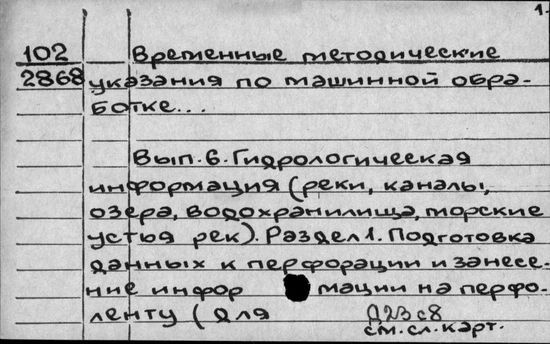 1.
102 Временные методические
2868 указания по машинной обра-
ботке...
Вып.6. Гидрологическая
информация (реки, каналы,
озера, водохранилища, морские
устья рек). Раздел 1. Подготовка
данных к перфорации и занесе-
ние инфор мации на перфо-
ленту (для Д23с8
см.сл.карт.